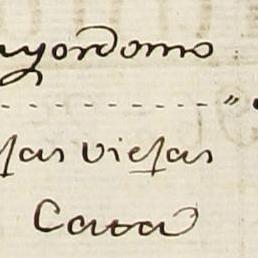 ayordomo
"
sas viejas
Cata